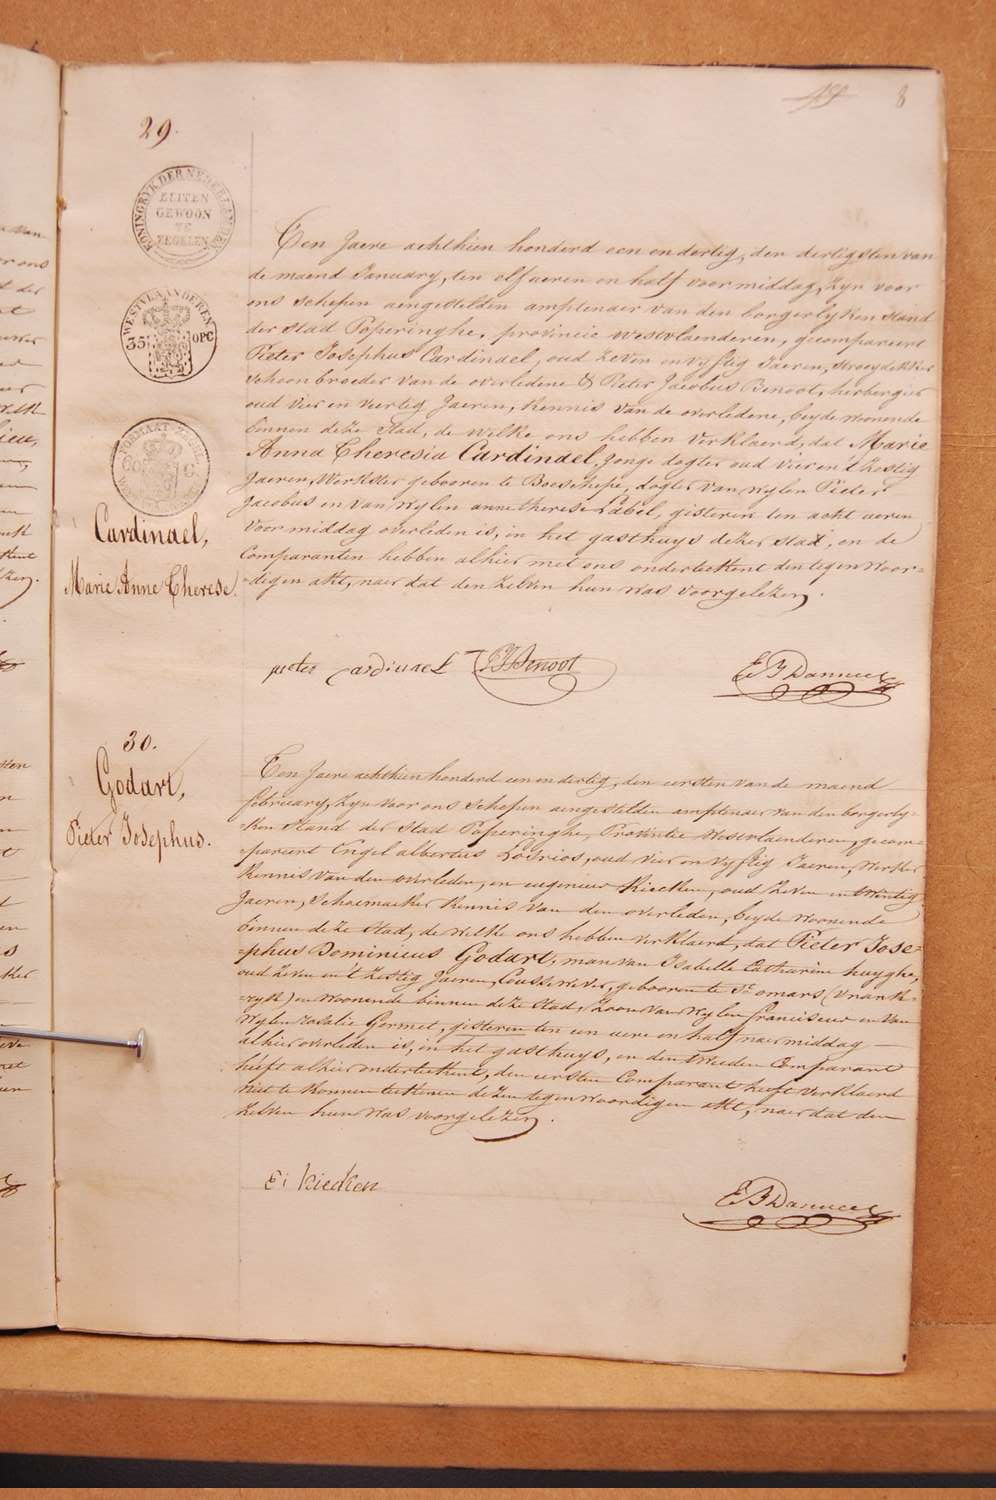 8
29.
KONINGRYK DER NEDERLANDEN
BUITEN
GEWOON
TE
ZEGELEN
WESTVLAANDEREN
35 OPC
FORMAAT ZEGEL
Cardinael,
Marie Anne Therese.
Ten Jaere achthien honderd een en dertig, den dertigsten van
de maend January, ten elf ueren en half voormiddag, zyn voor
ons schepen aengestelden amptenaer van den borgerlyken stand
der stad Poperinghe, provincie westvlaenderen, gecompareert
Pieter Josephus Cardinael, oud zeven en vyftig Jaeren, strooydekker
schoonbroeder van de overledene & Pieter Jacobus Benoot, herbergier
oud vier en veertig Jaeren, kennis van de overledene, beyde woonende
binnen deze stad, de welke ons hebben verklaerd, dat Marie
Anna Theresia Cardinael, Jonge dogter oud vier en 't zestig
Jaeren, Werkster gebooren te Boeschepe, dogter van wylen Pieter
Jacobus en van wylen anne therese Labél, gisteren ten acht ueren
voormiddag overleden is, in het gasthuys dezer stad, en de
Comparanten hebben alhier met ons onderteekent den tegenwoor=
=digen akt, naer dat den zelven hun was voorgelezen.
pieter Cardinael PJBenoot
30.
Godart,
Pieter Josephus.
Ten Jaere achthien honderd een en dertig, den eersten van de maend
february, zyn voor ons schepen aengestelden amptenaer van den borgerly=
=ken stand der stad Poperinghe, Provintie westvlaenderen, gecom=
=pareert Engel albertus, oud vier en vyftig Jaeren, werker
kennis van den overleden, en eugenius Kiecken, oud zeven en twintig
Jaeren, Schoemaeker kennis van den overleden, beyde woonende
binnen deze stad, de welke ons hebben verklaerd, dat Pieter Jose=
=phus Dominicus Godart, man van Isabelle Catharine huyghe,
oud zeven en 't zestig Jaeren, Coussewever, gebooren te St omars (vrank=
=ryk) en woonende binnen deze stad, zoon van wylen franciscus en van
wylen rosalie Gormet, gisteren ten een uere en half naermiddag
alhier overleden is, in het gasthuys, en den tweeden Comparant
heeft alhier onderteekent, den eersten Comparant heeft verklaerd
niet te konnen teekenen dezen tegenwoordigen akt, naer dat den
zelven hun was voorgelezen.
E: Kiecken